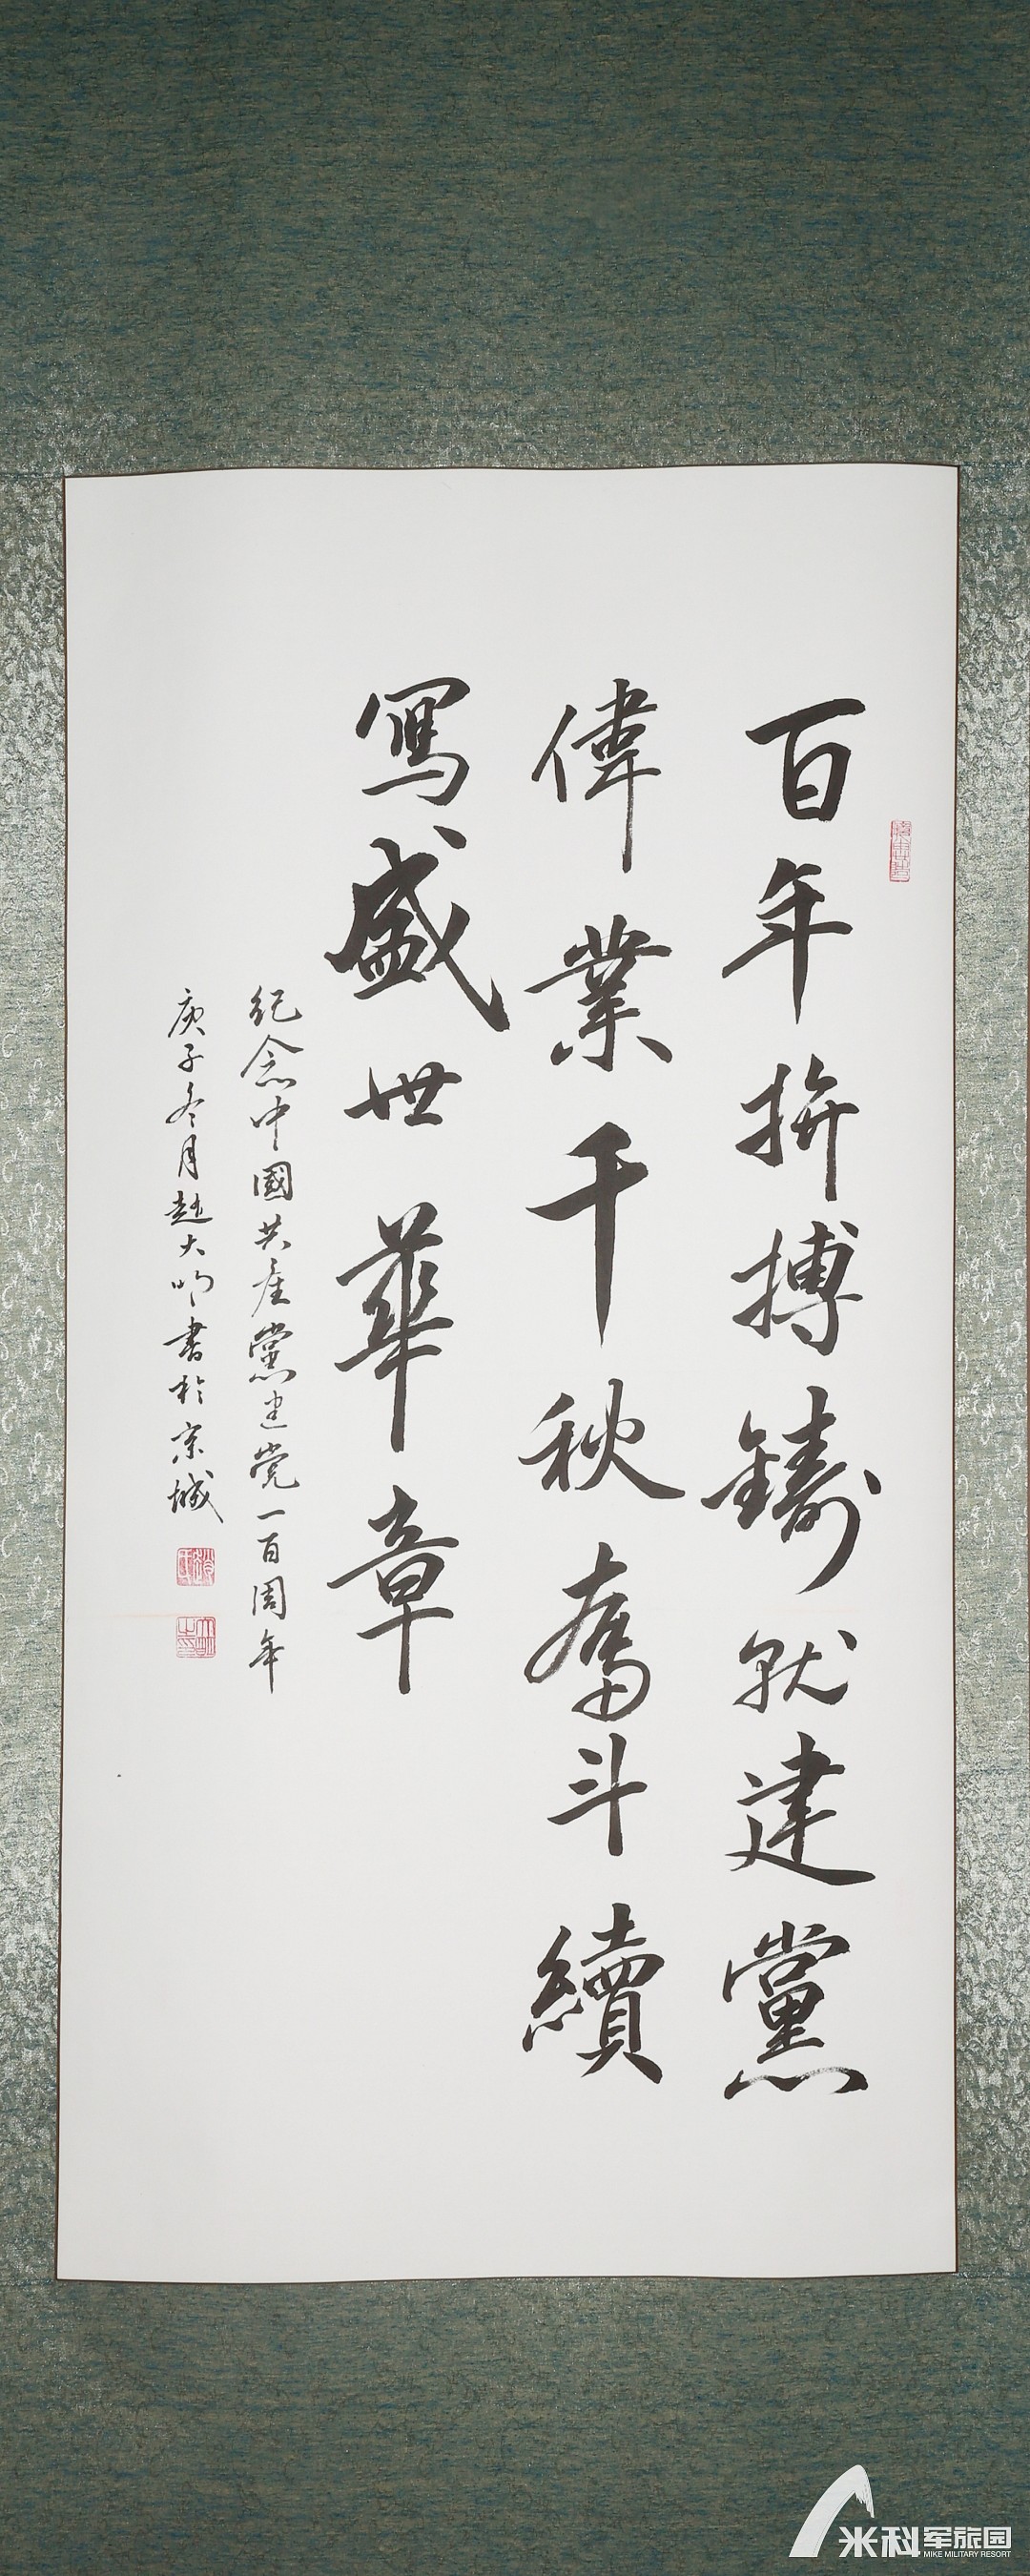 百年拚搏鑄就建黨
偉業千秋奮斗續
寫盛世華章
紀念中國共產黨建党一百周年
庚子冬月趙大明書於京城
米科军旅园
MIKE MILITARY RESORT